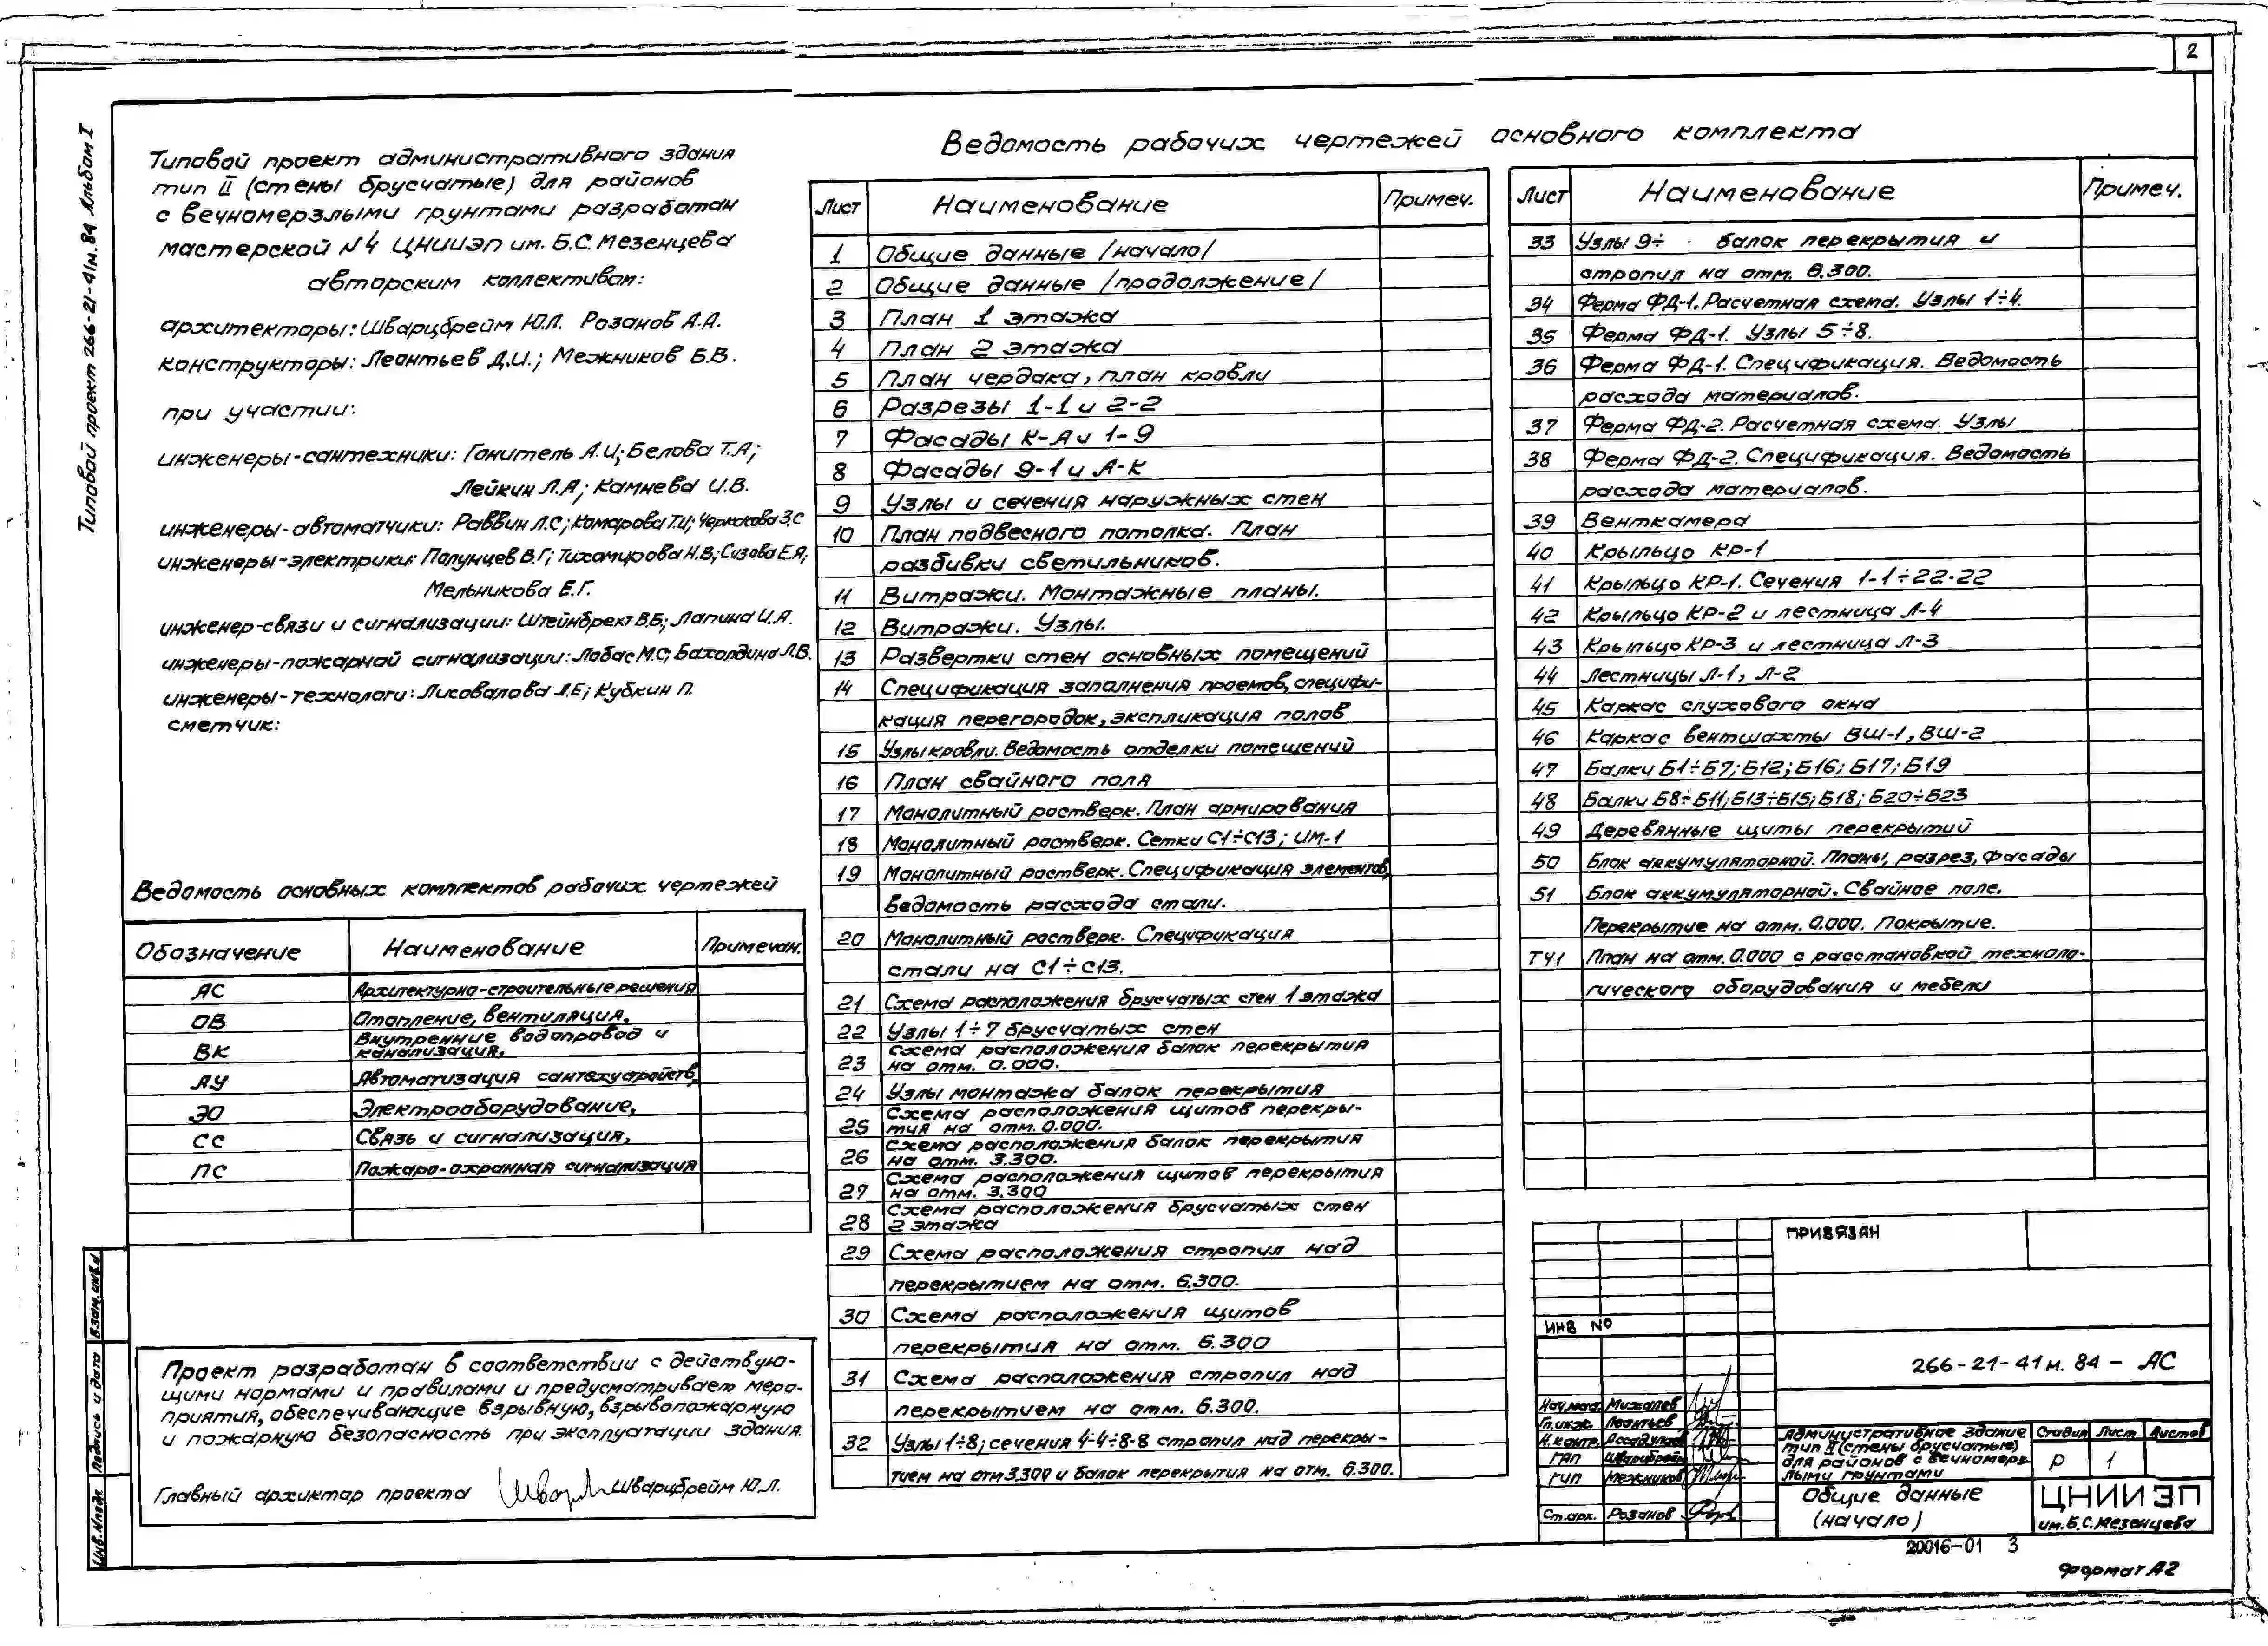 2
Типовой проект 266-21-41м.84 Альбом I
Типовой проект административного здания
тип II (стены брусчатые) для районов
с вечномерзлыми грунтами разработан
мастерской №4 ЦНИИЭП им. Б.С. Мезенцева
авторским коллективом:
архитекторы: Шварцбрейм Ю.Л. Розанов А.А.
конструкторы: Леонтьев Д.И.; Межников Б.В.
при участии:
инженеры-сантехники: Ганитель А.И; Белова Т.А;
Лейкин Л.А; Камнева И.В.
инженеры-автоматчики: Раввин Л.С; Комарова Т.И; Чернакова З.С
инженеры-электрики: Полунцев В.Г; Тихомирова Н.В; Сизова Е.Я;
Мельникова Е.Г.
инженер-связи и сигнализации: Штейнбрехт В.Б; Лапина И.А.
инженеры-пожарной сигнализации: Лобас М.С; Бахолдина Л.В.
инженеры-технологи: Лиховалова Л.Е; Кубкин П.
сметчик:
Ведомость основных комплектов рабочих чертежей
Обозначение Наименование Примечан.
АС Архитектурно-строительные решения
ОВ Отопление, вентиляция,
ВК Внутренние водопровод и
канализация,
АУ Автоматизация сантехустройств,
ЭО Электрооборудование,
СС Связь и сигнализация,
ПС Пожаро-охранная сигнализация
Проект разработан в соответствии с действую-
щими нормами и правилами и предусматривает меро-
приятия, обеспечивающие взрывную, взрывопожарную
и пожарную безопасность при эксплуатации здания.
Главный архиктар проекта Шварцбрейм Ю.Л.
Ведомость рабочих чертежей основного комплекта
Лист Наименование Примеч.
1 Общие данные /начало/
2 Общие данные /продолжение/
3 План 1 этажа
4 План 2 этажа
5 План чердака, план кровли
6 Разрезы 1-1 и 2-2
7 Фасады К-А и 1-9
8 Фасады 9-1 и А-К
9 Узлы и сечения наружных стен
10 План подвесного потолка. План
разбивки светильников.
11 Витражи. Монтажные планы.
12 Витражи. Узлы.
13 Развертки стен основных помещений
14 Спецификация заполнения проемов, специфи-
кация перегородок, экспликация полов
15 Узлы кровли. Ведомость отделки помещений
16 План свайного поля
17 Монолитный ростверк. План армирования
18 Монолитный ростверк. Сетки С1÷С13; ИМ-1
19 Монолитный ростверк. Спецификация элементов,
ведомость расхода стали.
20 Монолитный ростверк. Спецификация
стали на С1÷С13.
21 Схема расположения брусчатых стен 1 этажа
22 Узлы 1÷7 брусчатых стен
23 Схема расположения балок перекрытия
на отм. 0.000.
24 Узлы монтажа балок перекрытия
25 Схема расположения щитов перекры-
тия на отм. 0.000.
26 Схема расположения балок перекрытия
на отм. 3.300.
27 Схема расположения щитов перекрытия
на отм. 3.300
28 Схема расположения брусчатых стен
2 этажа
29 Схема расположения стропил над
перекрытием на отм. 6.300.
30 Схема расположения щитов
перекрытия на отм. 6.300
31 Схема расположения стропил над
перекрытием на отм. 6.300.
32 Узлы 1÷8; сечения 4-4÷8-8 стропил над перекры-
тием на отм 3.300 и балок перекрытия на отм. 6.300.
Лист Наименование Примеч.
33 Узлы 9÷ балок перекрытия и
стропил на отм. 6.300.
34 Ферма ФД-1. Расчетная схема. Узлы 1÷4.
35 Ферма ФД-1. Узлы 5÷8.
36 Ферма ФД-1. Спецификация. Ведомость
расхода материалов.
37 Ферма ФД-2. Расчетная схема. Узлы
38 Ферма ФД-2. Спецификация. Ведомость
расхода материалов.
39 Венткамера
40 Крыльцо КР-1
41 Крыльцо КР-1. Сечения 1-1÷22-22
42 Крыльцо КР-2 и лестница Л-4
43 Крыльцо КР-3 и лестница Л-3
44 Лестницы Л-1, Л-2
45 Каркас слухового окна
46 Каркас вентшахты ВШ-1, ВШ-2
47 Балки Б1÷Б7; Б12; Б16; Б17; Б19
48 Балки Б8÷Б11; Б13÷Б15; Б18; Б20÷Б23
49 Деревянные щиты перекрытий
50 Блок аккумуляторной. Планы, разрез, фасады
51 Блок аккумуляторной. Свайное поле.
Перекрытие на отм. 0.000. Покрытие.
ТЧ1 План на отм. 0.000 с расстановкой техноло-
гического оборудования и мебели
ПРИВЯЗАН
ИНВ №
266-21-41м. 84 - АС
Нач.мас. Михалев
Гл.инж. Леонтьев
Н.контр. Асадулаев
ГАП Шварцбрейм
ГИП Межников
Ст.арх. Розанов
Административное здание
тип II (стены брусчатые)
для районов с вечномерз-
лыми грунтами
Стадия Лист Листов
Р 1
Общие данные
(начало)
ЦНИИЭП
им. Б.С. Мезенцева
20016-01 3
Формат А2
Взам. инв. №
Подпись и дата
Инв. № подл.